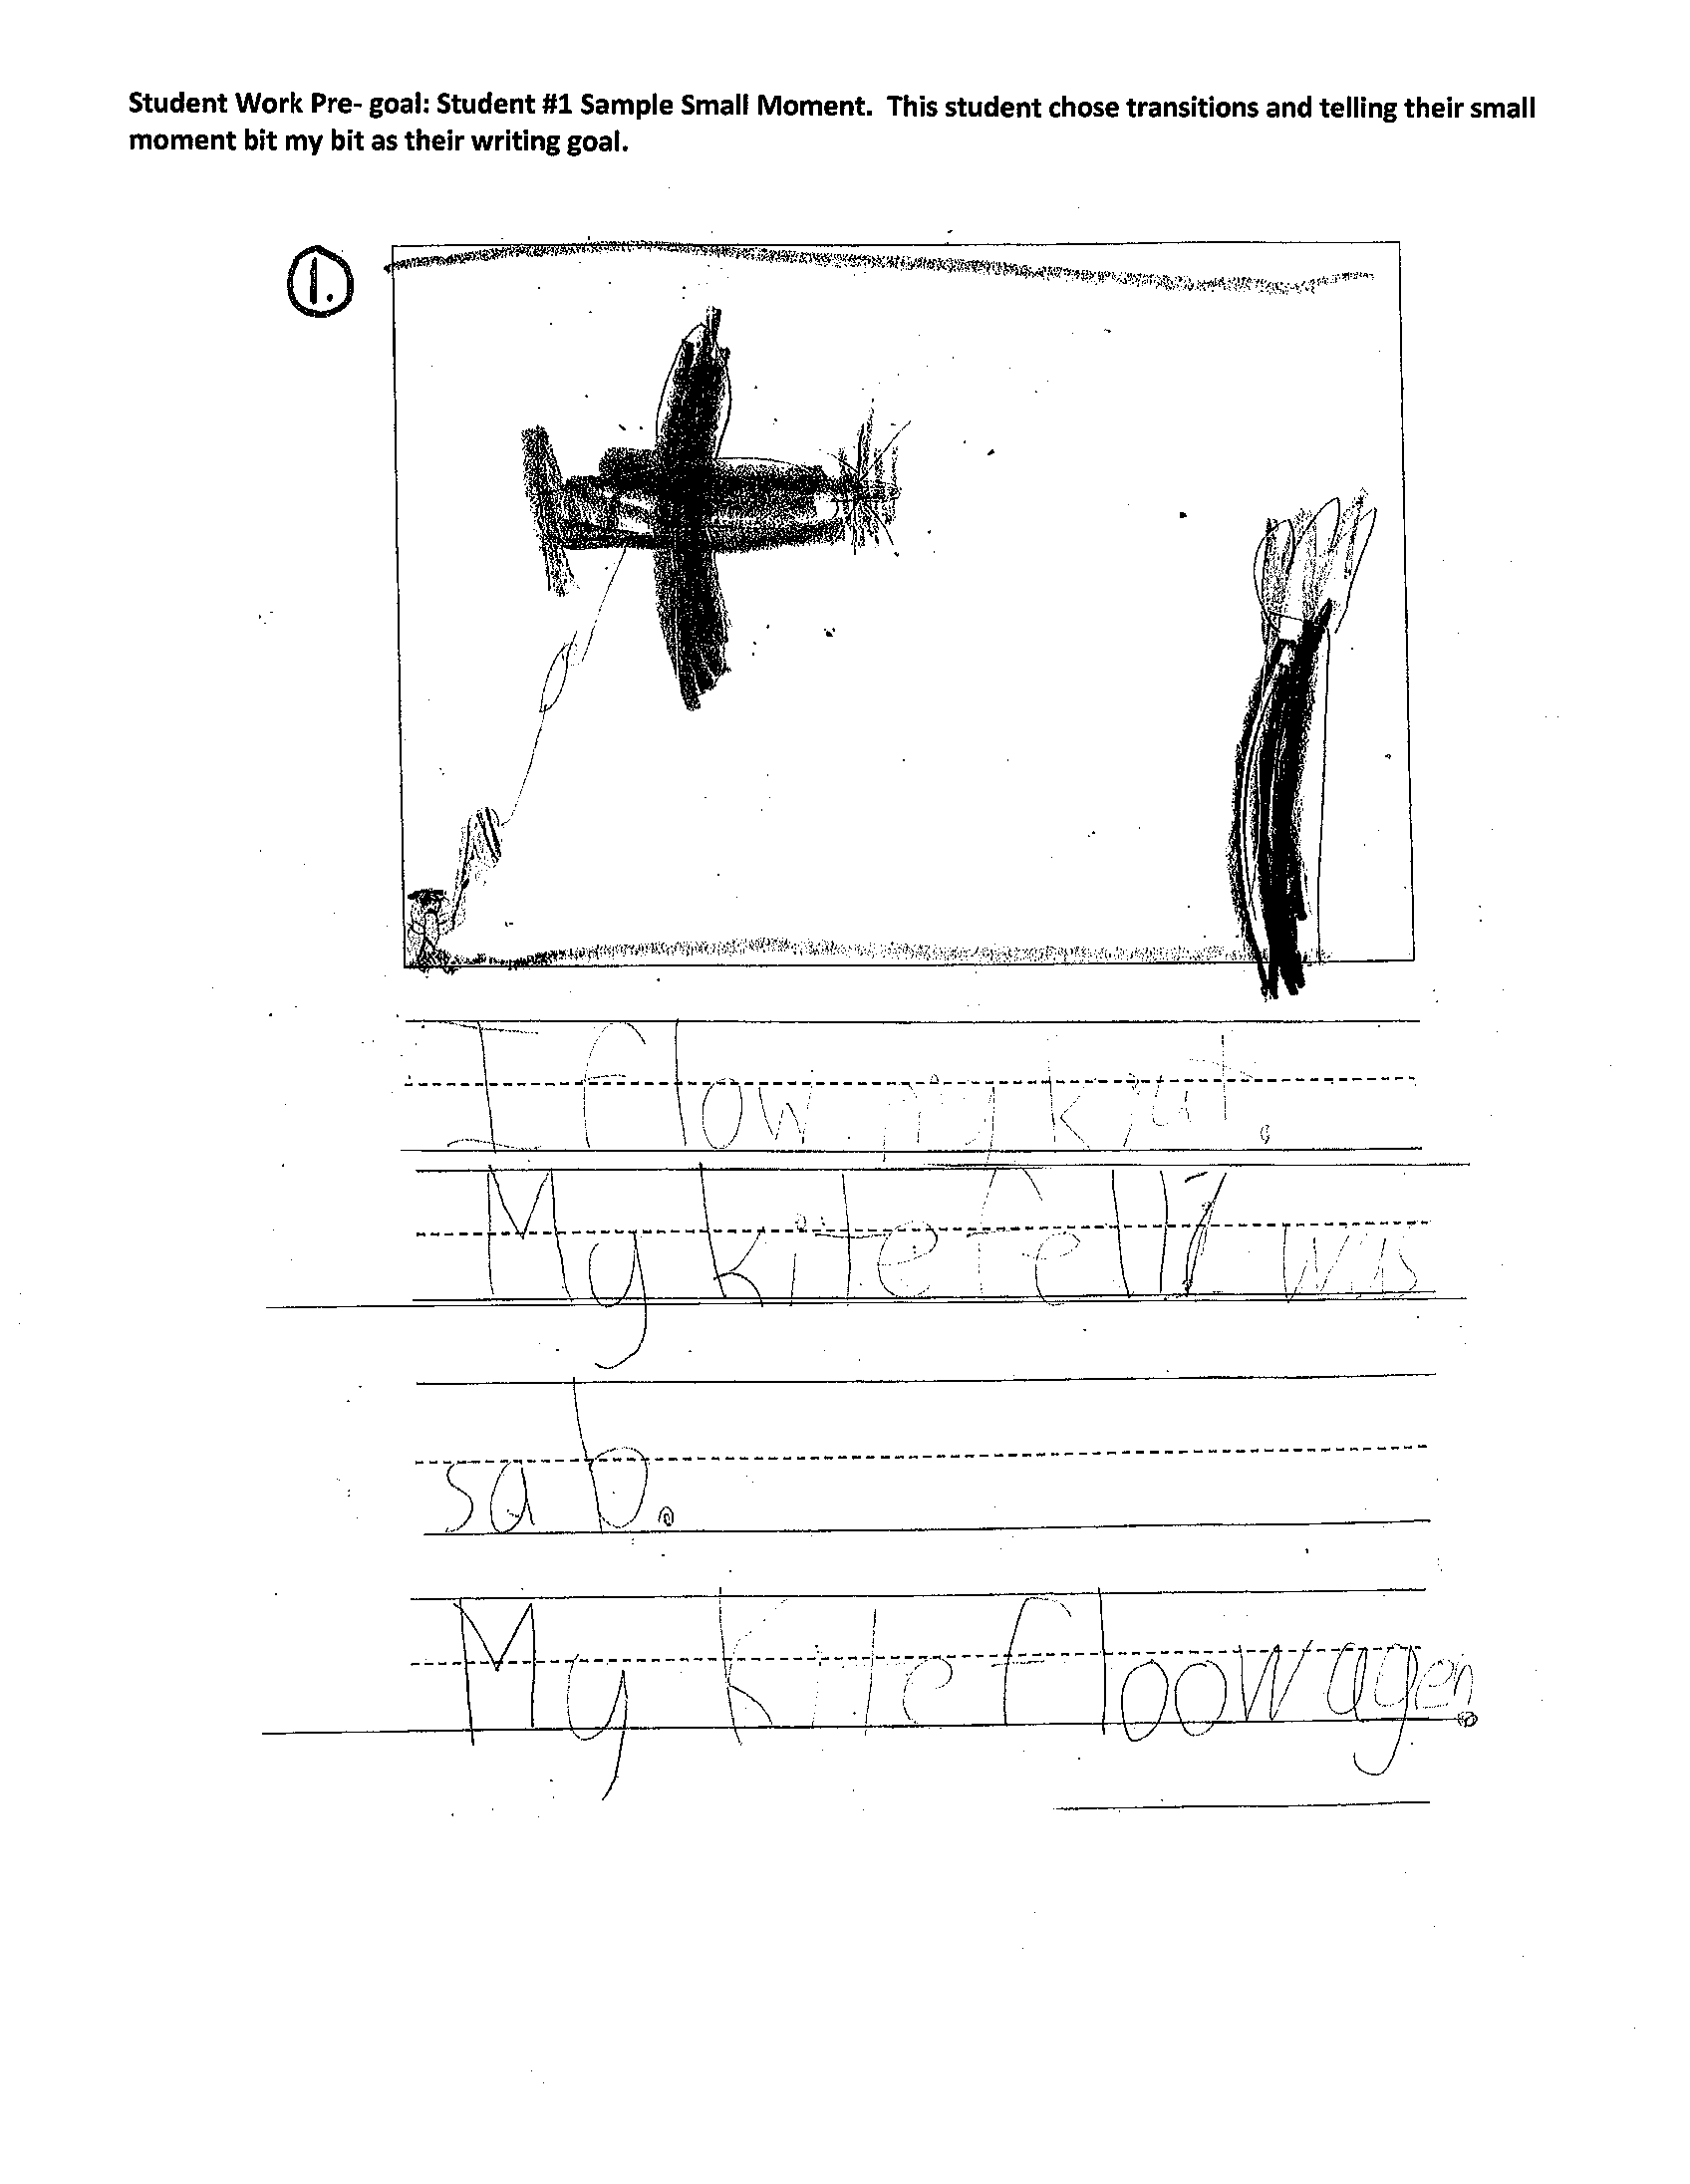 Student Work Pre- goal: Student #1 Sample Small Moment. This student chose transitions and telling their small
moment bit my bit as their writing goal.
1.
I flow my
My kite fell I was
sab.
My kite floow agen.